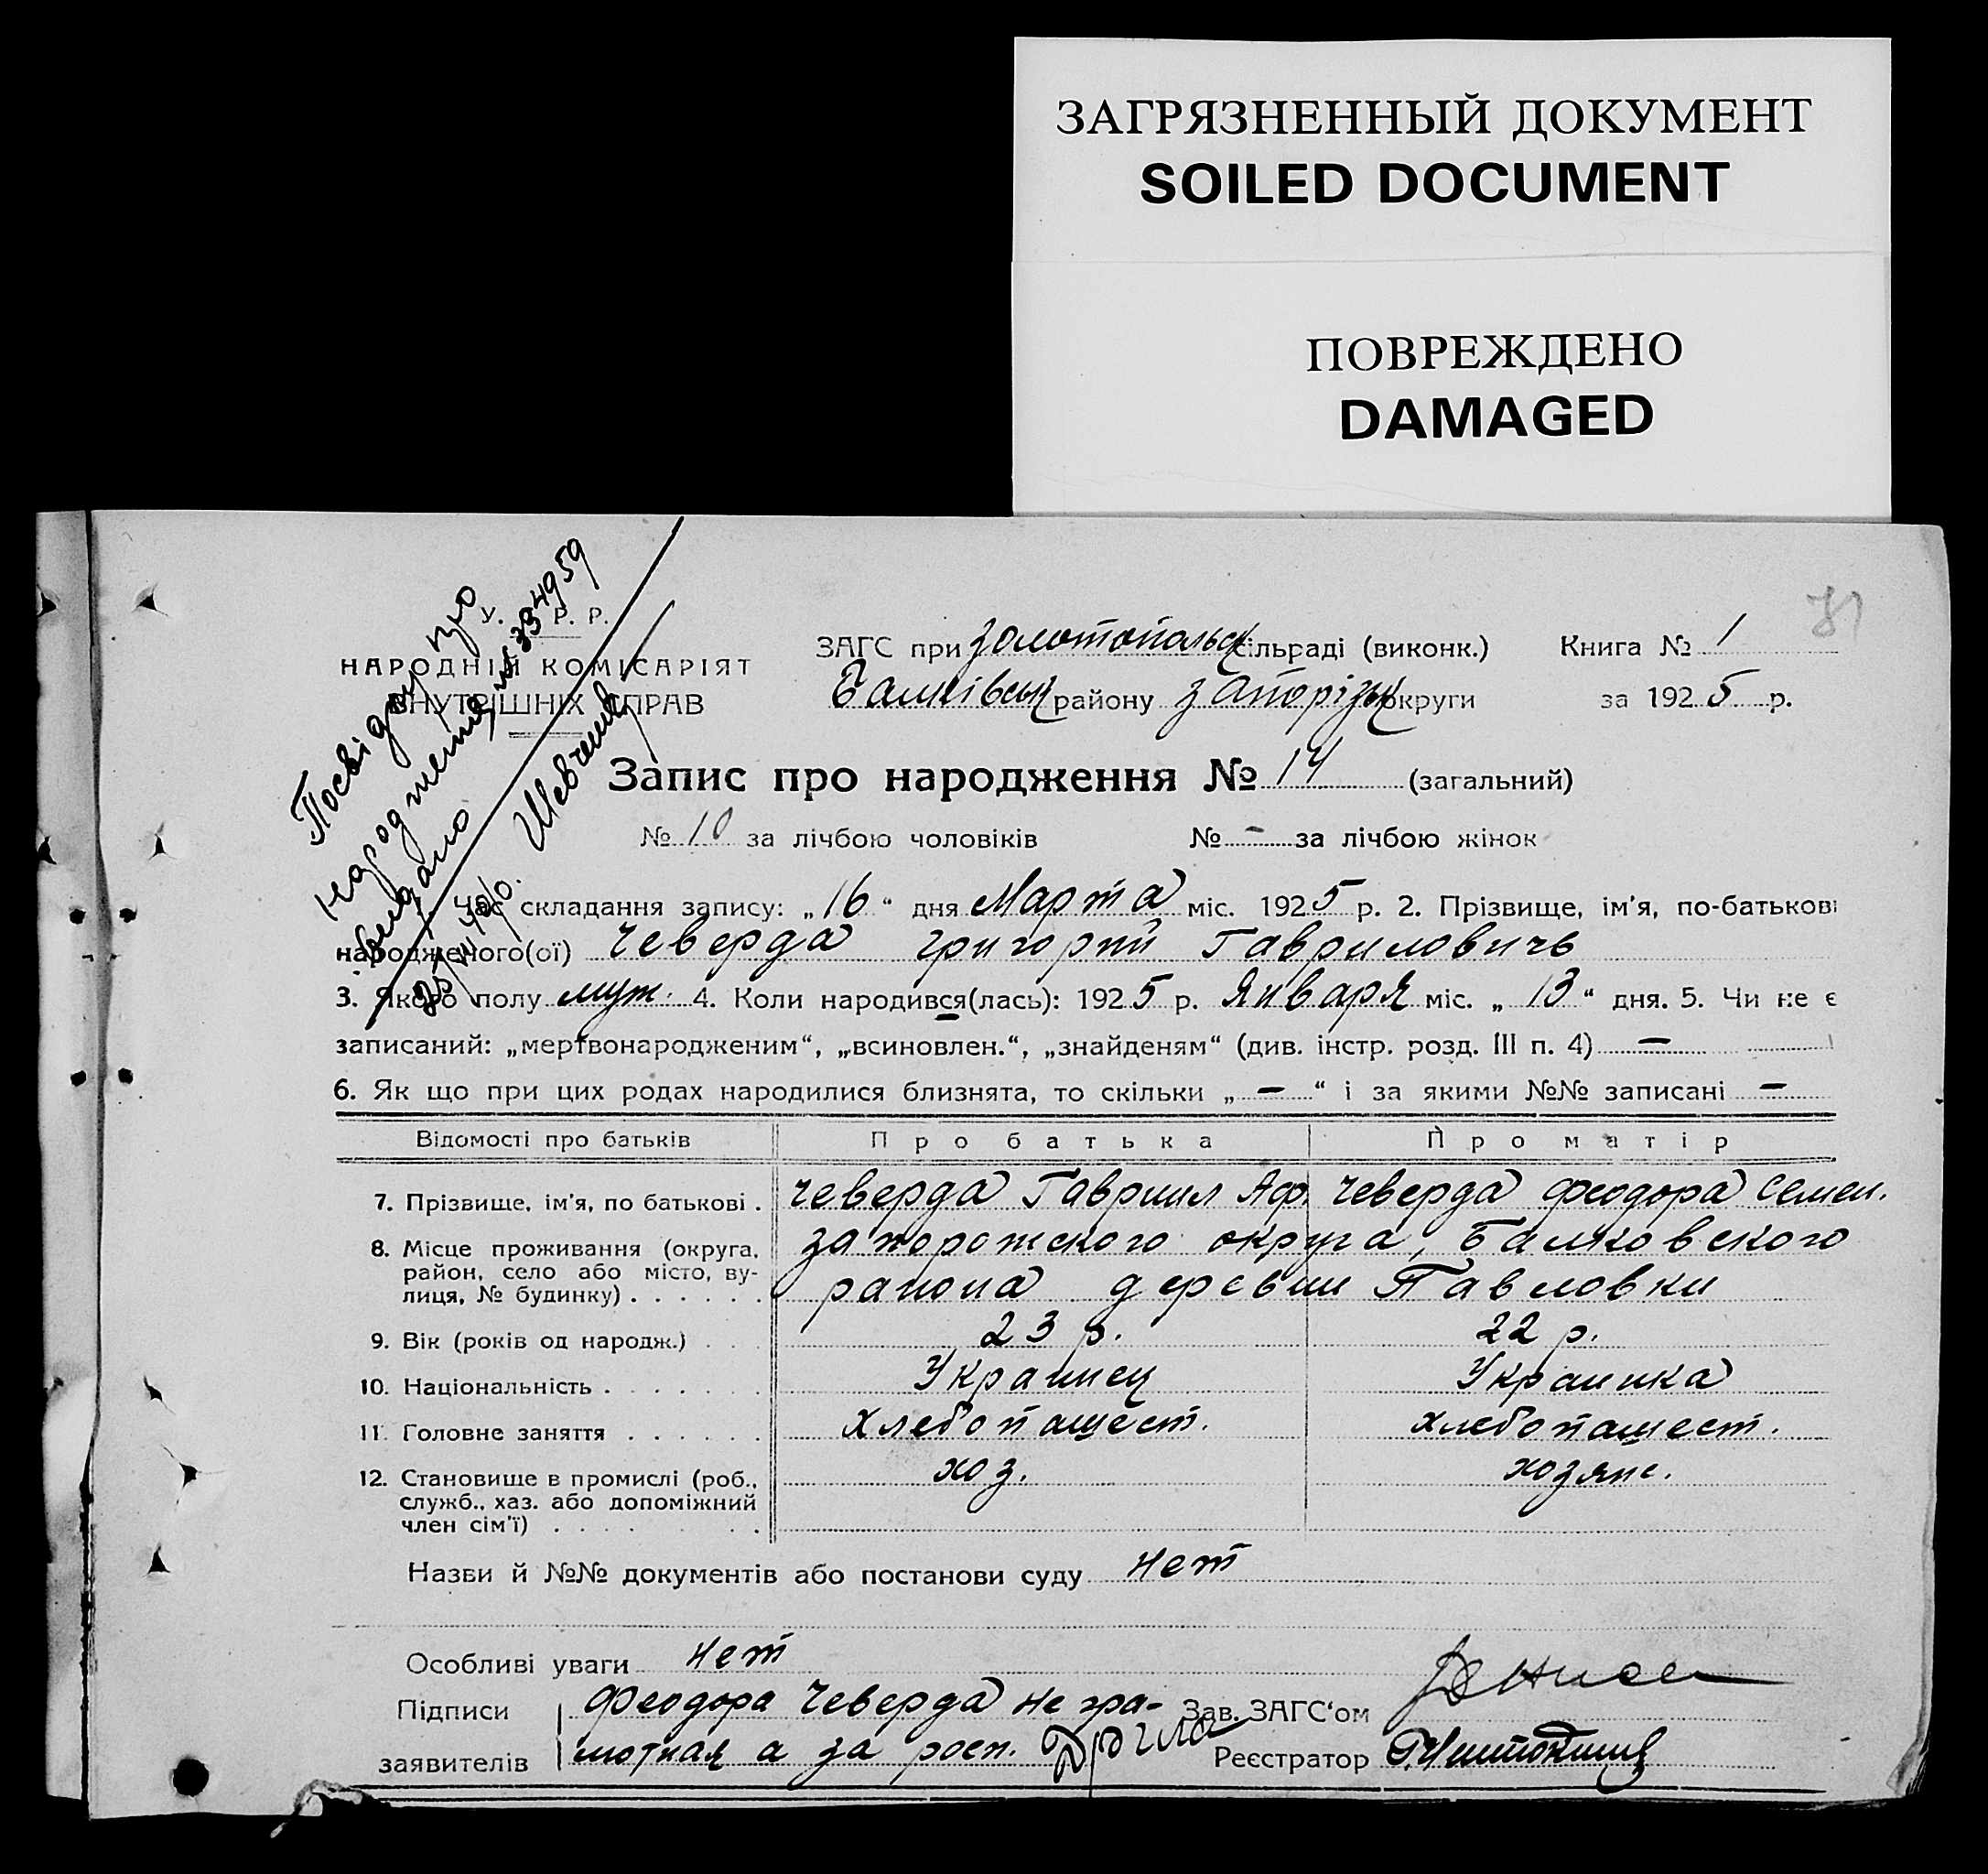 ЗАГРЯЗНЕННЫЙ ДОКУМЕНТ
SOILED DOCUMENT
ПОВРЕЖДЕНО
DAMAGED
У. Р. Р.
НАРОДНІЙ КОМІСАРІЯТ
ВНУТРІШНІХ СПРАВ
Посвідку про
народження № 334959
видано
Шевченко
ЗАГС при Золотопольск сільраді (виконк.) Книга № 1
Балківськ району Запорізьк округи за 1925 р.
Запис про народження № 14 (загальний)
№ 10 за лічбою чоловіків № - за лічбою жінок
Час складання запису: „16“ дня Марта міс. 1925 р. 2. Прізвище, ім'я, по-батькові
народженого(ої) Чеверда Григорій Гавриловичь
3. Якого полу муж. 4. Коли народився(лась): 1925 р. Января міс. „13“ дня. 5. Чи не є
записаний: „мертвонародженим“, „всиновлен.“, „знайденям“ (див. інстр. розд. III п. 4) —
6. Як що при цих родах народилися близнята, то скільки „—“ і за якими №№ записані —
Відомості про батьків Про батька Про матір
7. Прізвище, ім'я, по батькові . Чеверда Гавриил Аф. Чеверда Феодора Семен.
8. Місце проживання (округа, Запорожского округа, Балковского
район, село або місто, ву-
лиця, № будинку) . . . . . . района деревни Павловки
9. Вік (років од народж.) . . . 23 р. 22 р.
10. Національність . . . . . . . Украинец Украинка
11. Головне заняття . . . . . . Хлебопашест. хлебопашест.
12. Становище в промислі (роб., хоз. хозяис.
служб., хаз. або допоміжний
член сім'ї) . . . . . . .
Назви й №№ документів або постанови суду нет
Особливі уваги нет
Підписи Феодора Чеверда не гра- Зав. ЗАГС'ом
заявителів мотная а за росп. Реєстратор